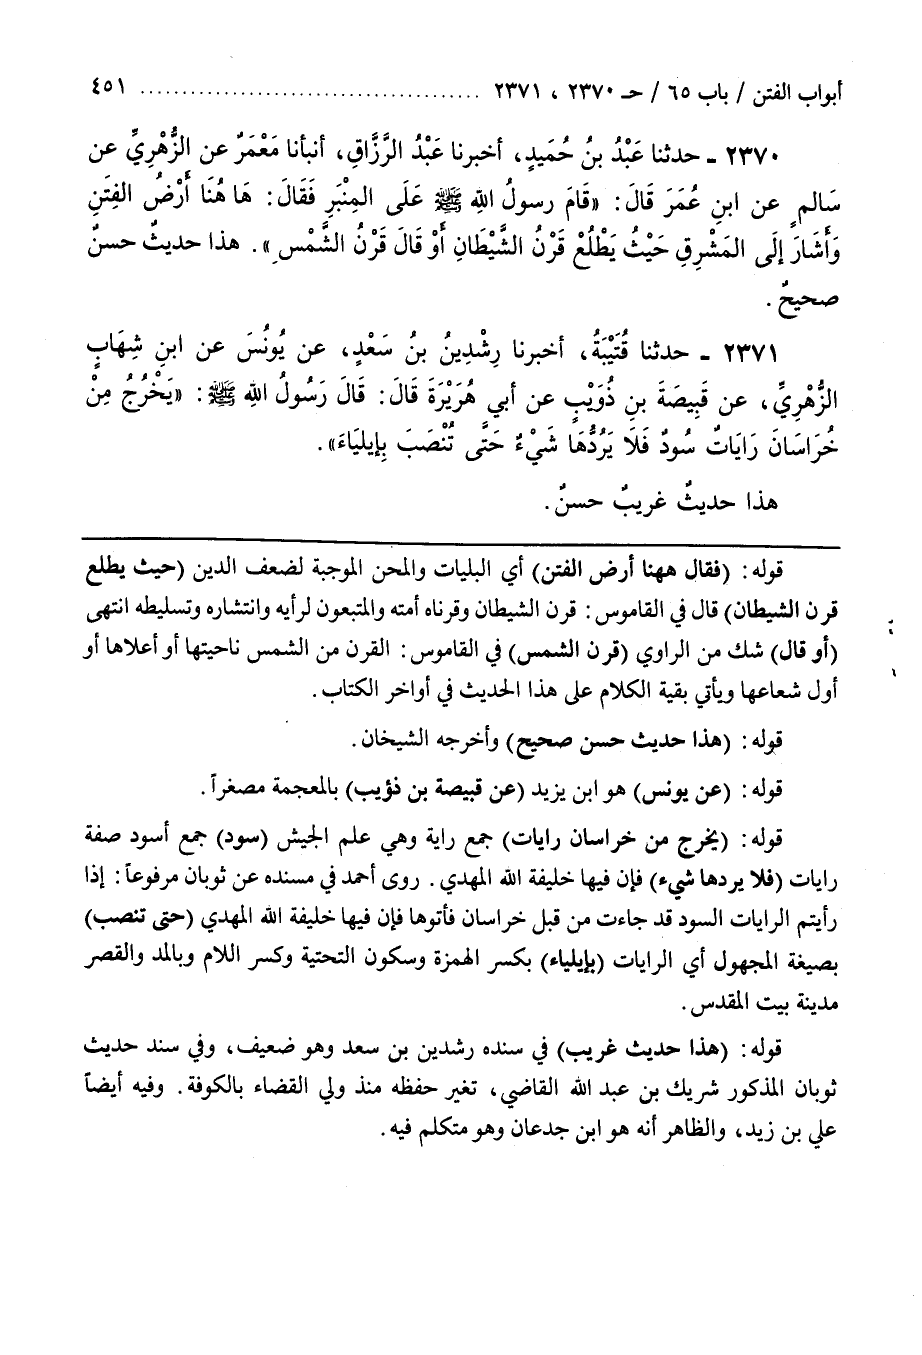 أبواب الفتن / باب ٦٥ / حـ ٢٣٧٠ ، ٢٣٧١ ........................................ ٤٥١
٢٣٧٠ ـ حدثنا عَبْدُ بنُ حُمَيدٍ، أخبرنا عَبْدُ الرَّزَّاقِ، أنبأنا مَعْمَرٌ عن الزُّهْرِيِّ عن
سَالمٍ عن ابنِ عُمَرَ قَالَ: «قَامَ رسولُ اللهِ ﷺ عَلَى المِنْبَرِ فَقَالَ: هَا هُنَا أَرْضُ الفِتَنِ
وَأَشَارَ إلَى المَشْرِقِ حَيْثُ يَطْلُعُ قَرْنُ الشَّيْطَانِ أَوْ قَالَ قَرْنُ الشَّمْسِ». هذا حديثٌ حسنٌ
صحيحٌ.
٢٣٧١ ـ حدثنا قُتَيْبَةُ، أخبرنا رِشْدِينُ بنُ سَعْدٍ، عن يُونُسَ عن ابنِ شِهَابٍ
الزُّهْرِيِّ، عن قَبِيصَةَ بنِ ذُوَيْبٍ عن أبي هُرَيْرَةَ قَالَ: قَالَ رَسُولُ اللهِ ﷺ: «يَخْرُجُ مِنْ
خُرَاسَانَ رَايَاتٌ سُودٌ فَلَا يَرُدُّهَا شَيْءٌ حَتَّى تُنْصَبَ بِإيلِيَاءَ».
هذا حديثٌ غريبٌ حسنٌ.
قوله: (فقال ههنا أرض الفتن) أي البليات والمحن الموجبة لضعف الدين (حيث يطلع
قرن الشيطان) قال في القاموس: قرن الشيطان وقرناه أمته والمتبعون لرأيه وانتشاره وتسليطه انتهى
(أو قال) شك من الراوي (قرن الشمس) في القاموس: القرن من الشمس ناحيتها أو أعلاها أو
أول شعاعها ويأتي بقية الكلام على هذا الحديث في أواخر الكتاب.
قوله: (هذا حديث حسن صحيح) وأخرجه الشيخان.
قوله: (عن يونس) هو ابن يزيد (عن قبيصة بن ذؤيب) بالمعجمة مصغراً.
قوله: (يخرج من خراسان رايات) جمع راية وهي علم الجيش (سود) جمع أسود صفة
رايات (فلا يردها شيء) فإن فيها خليفة الله المهدي. روى أحمد في مسنده عن ثوبان مرفوعاً: إذا
رأيتم الرايات السود قد جاءت من قبل خراسان فأتوها فإن فيها خليفة الله المهدي (حتى تنصب)
بصيغة المجهول أي الرايات (بإيلياء) بكسر الهمزة وسكون التحتية وكسر اللام وبالمد والقصر
مدينة بيت المقدس.
قوله: (هذا حديث غريب) في سنده رشدين بن سعد وهو ضعيف، وفي سند حديث
ثوبان المذكور شريك بن عبد الله القاضي، تغير حفظه منذ ولي القضاء بالكوفة. وفيه أيضاً
علي بن زيد، والظاهر أنه هو ابن جدعان وهو متكلم فيه.